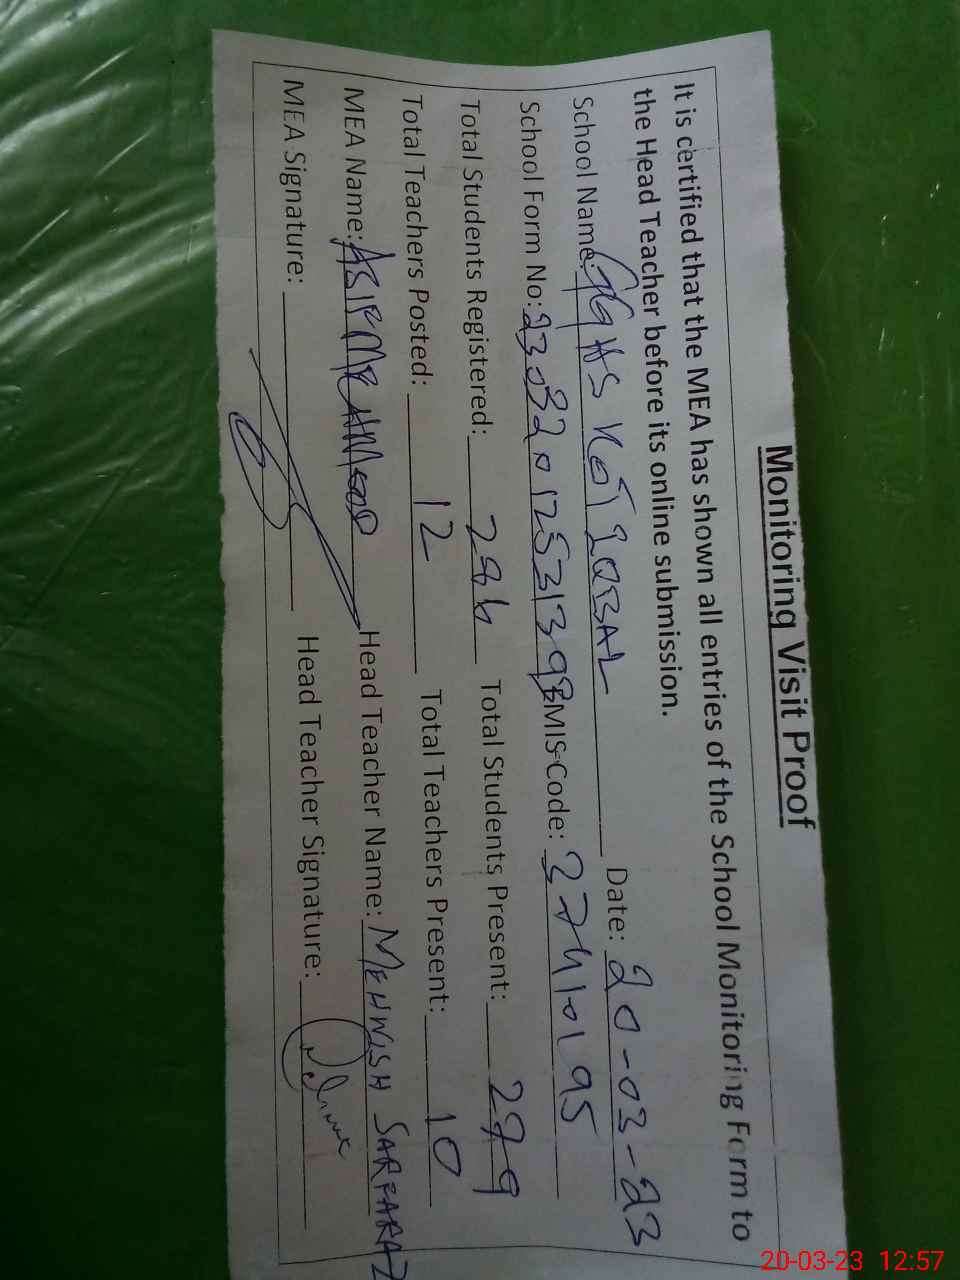 Monitoring Visit Proof
It is certified that the MEA has shown all entries of the School Monitoring Form to
the Head Teacher before its online submission.
School Name: GGHS KOT IQBAL Date: 20-03-23
School Form No: EMIS Code: 37410195
Total Students Registered: Total Students Present: 279
Total Teachers Posted: 12 Total Teachers Present: 10
MEA Name: ASIF MEHMOOD Head Teacher Name: MEHWISH SARFARAZ
MEA Signature: Head Teacher Signature:
20-03-23 12:57